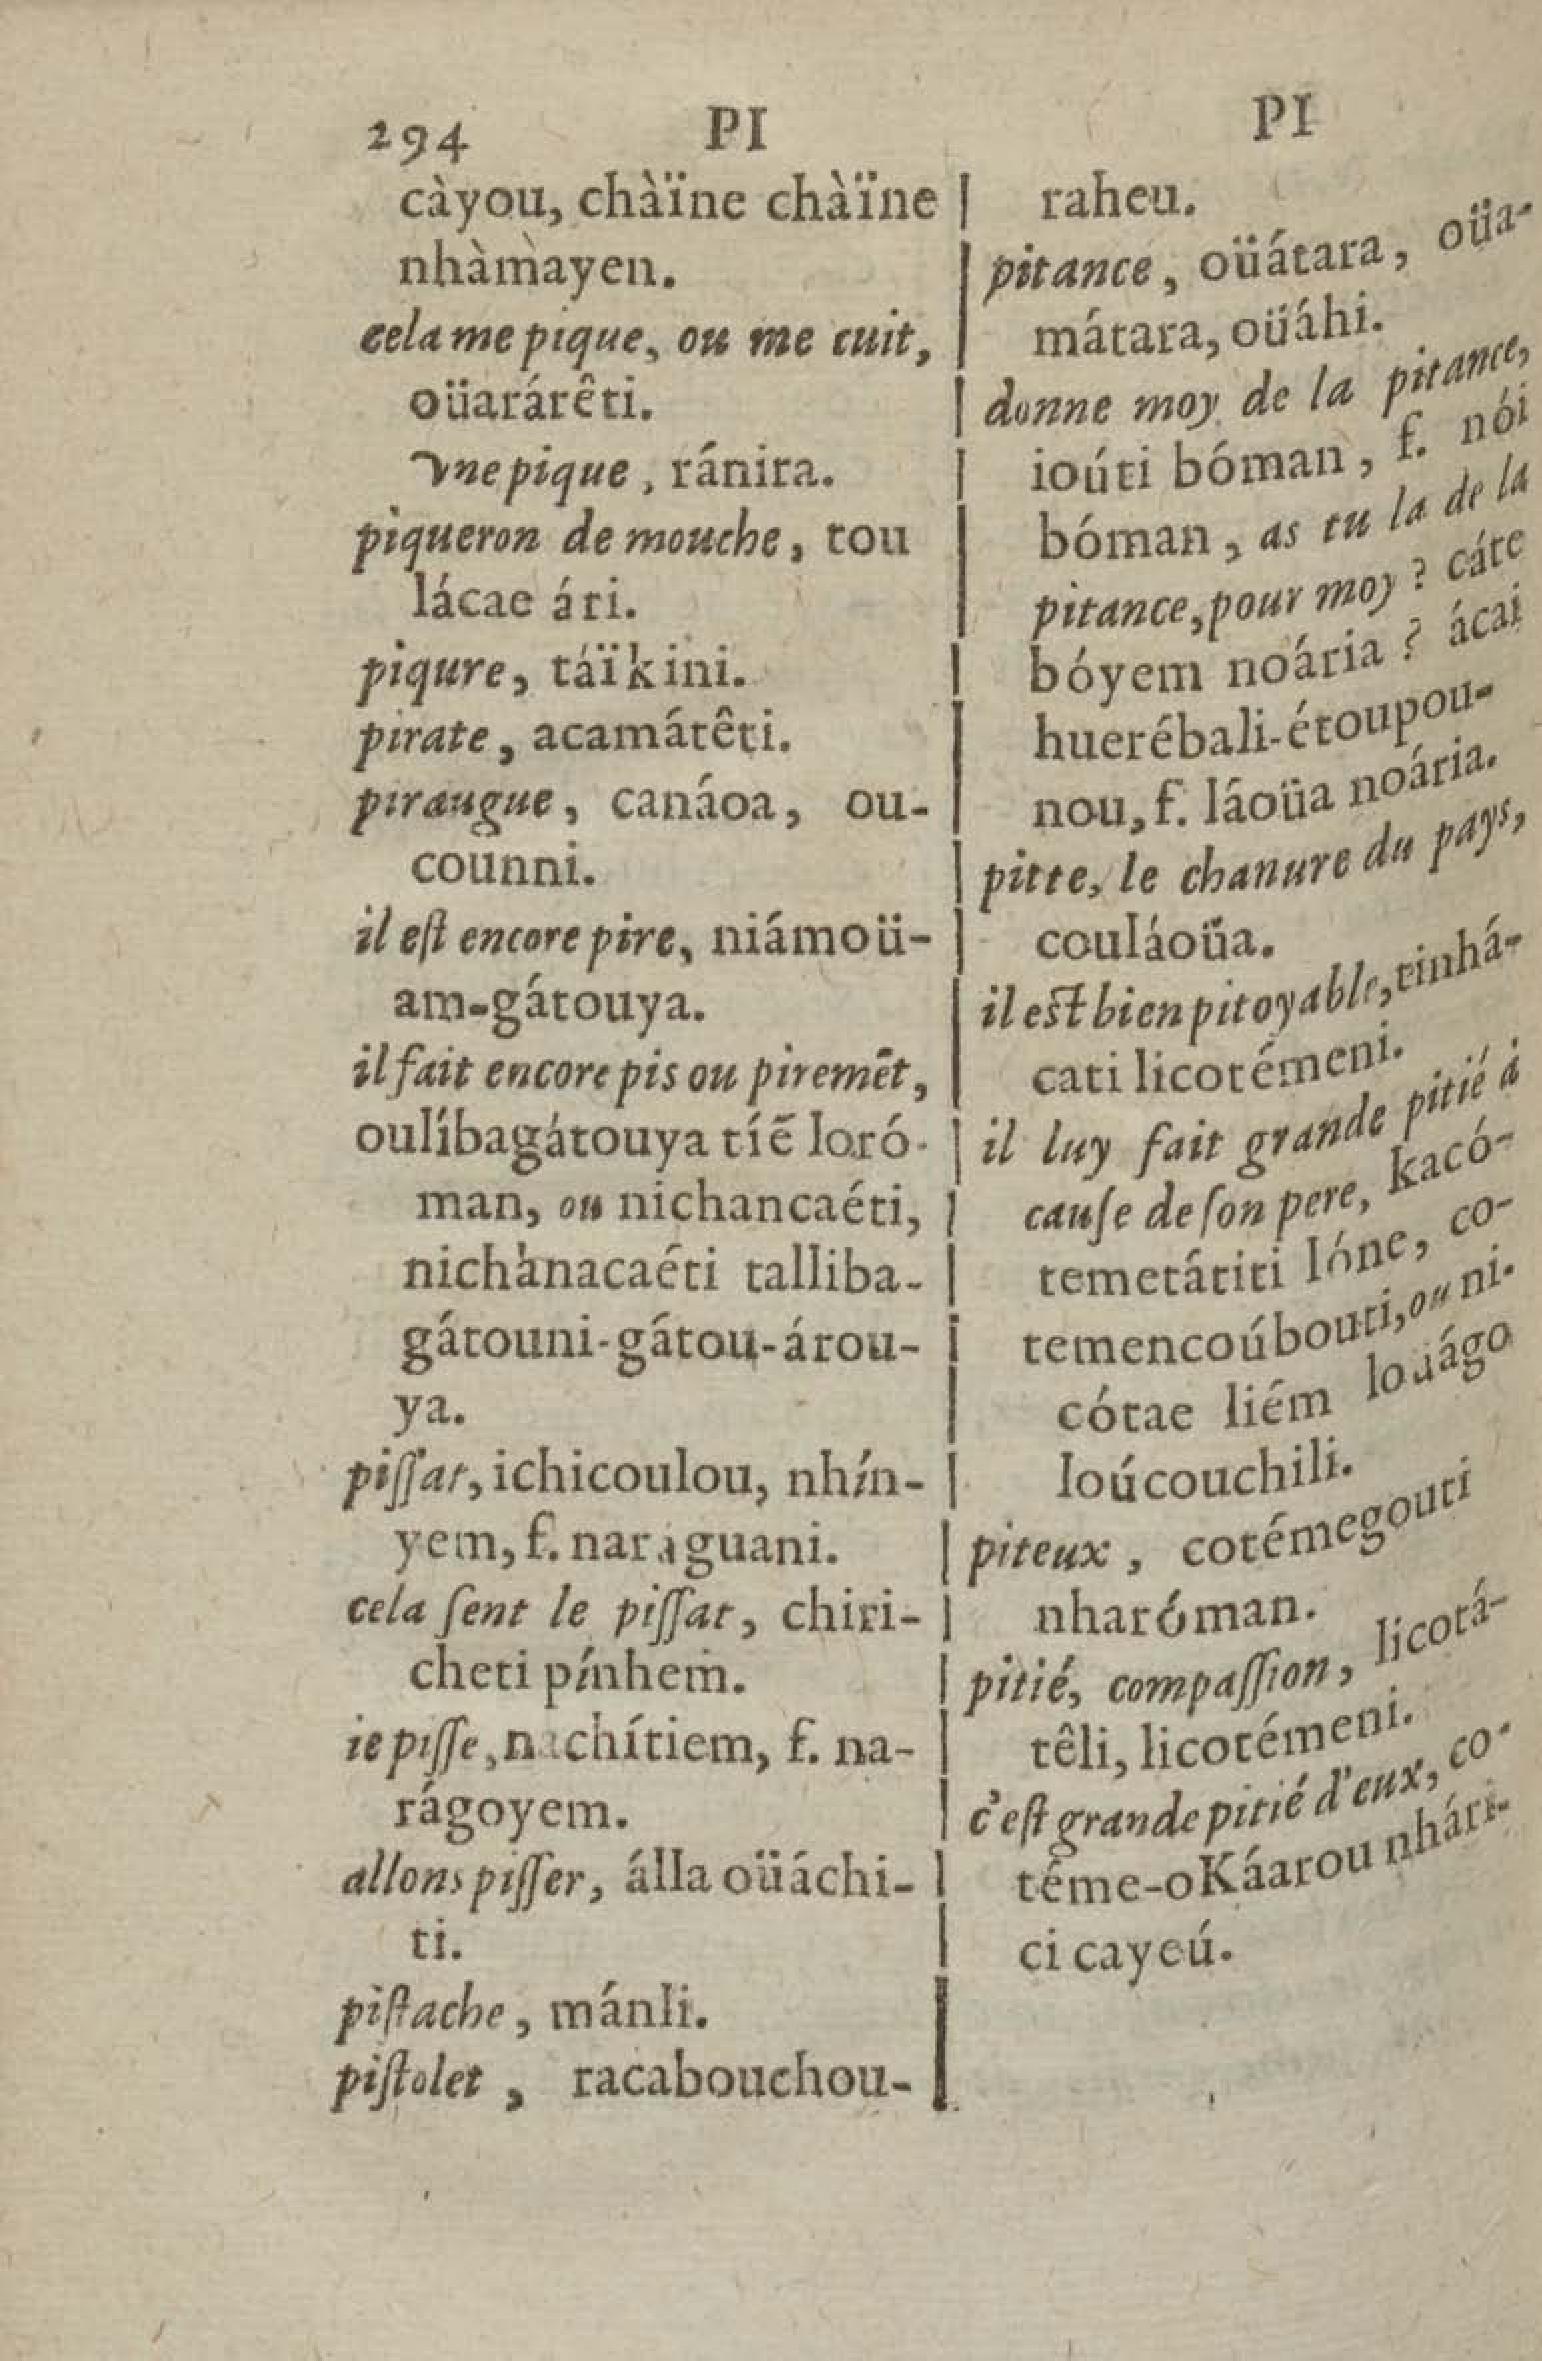 294 PI
càyou, chàïne chàïne
nhàmàyen.
cela me pique, ou me cuit,
oüarárêti.
vne pique, ránira.
piqueron de mouche, tou
lácae ári.
piqure, táïkini.
pirate, acamátêti.
piraugue, canáoa, ou-
counni.
il eſt encore pire, niámoü-
am-gátouya.
il fait encore pis ou piremēt,
oulíbagátouya tíē loró-
man, ou nichancaéti,
nichànacaéti talliba-
gátouni-gátou-árou-
ya.
piſſat, ichicoulou, nhín-
yem, f. naraguani.
cela ſent le piſſat, chiri-
cheti pínhem.
ie piſſe, nachítiem, f. na-
rágoyem.
allons piſſer, álla oüáchi-
ti.
piſtache, mánli.
piſtolet, racabouchou-
PI
raheu.
pitance, oüátara, oüa-
mátara, oüáhi.
donne moy de la pitance,
ioúti bóman, f. nói
bóman, as tu la de la
pitance, pour moy? cáte
bóyem noária? ácai
huerébali-étoupou-
nou, f. láoüa noária.
pitte, le chanure du pays,
couláoüa.
il eſt bien pitoyable, tinhá-
cati licotémeni.
il luy fait grande pitié à
cauſe de ſon pere, kacó-
temetátiti lóne, co-
temencoúbouti, ou ni-
cótae liém louágo
loúcouchili.
piteux, cotémegouti
nharóman.
pitié, compaſſion, licotá-
têli, licotémeni.
c'eſt grande pitié d'eux, co-
téme-oKáarou nhári-
ci cayeú.